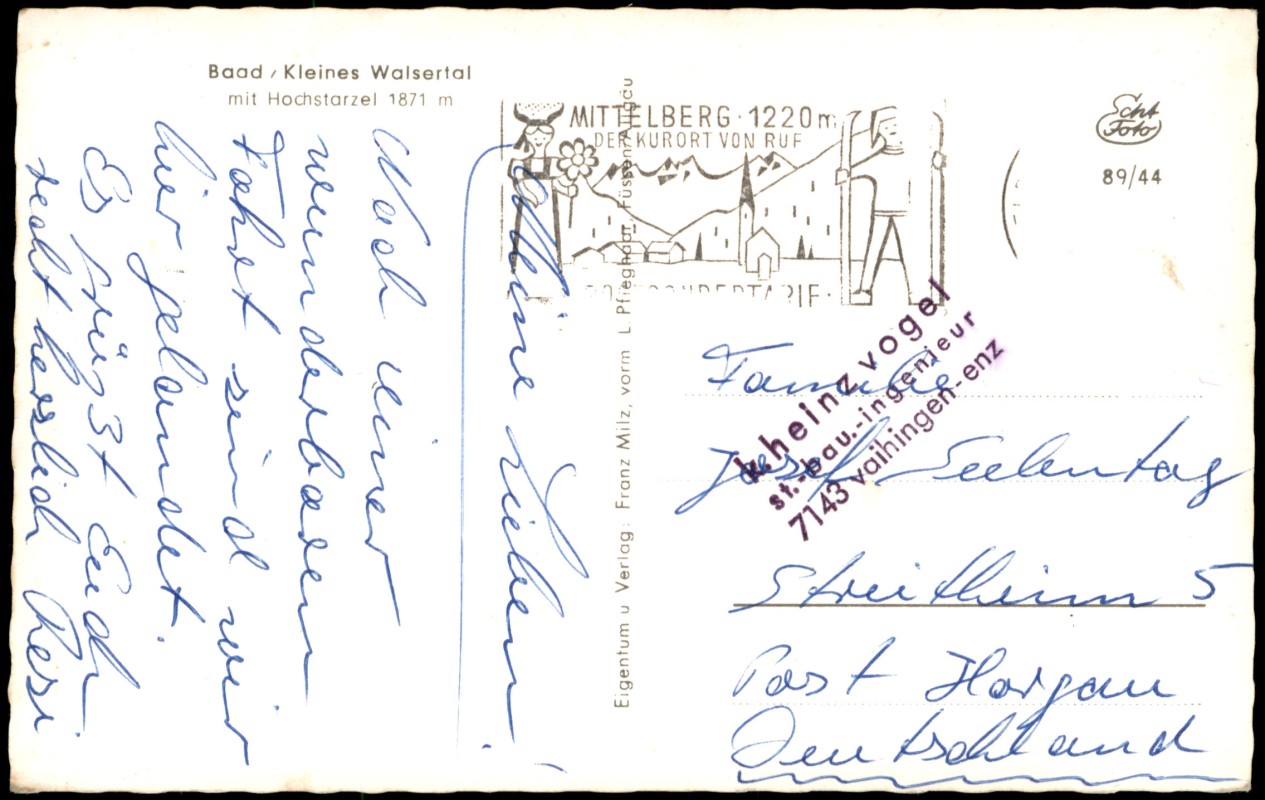 Baad / Kleines Walsertal
mit Hochstarzel 1871 m
MITTELBERG · 1220m
DER KURORT VON RUF
Echt
Foto
89/44
Meine Lieben!
Nach einer
wunderbaren
Fahrt sind wir
hier gelandet.
Es grüßt Euch
recht herzlich Resi
Eigentum u Verlag: Franz Milz, vorm L. Pfieghaar, Füssen Allgäu
k.heinz vogel
st.-bau.-ingenieur
7143 vaihingen-enz
Familie
Josef Seelentag
Streitheim 5
Post Horgau
Deutschland